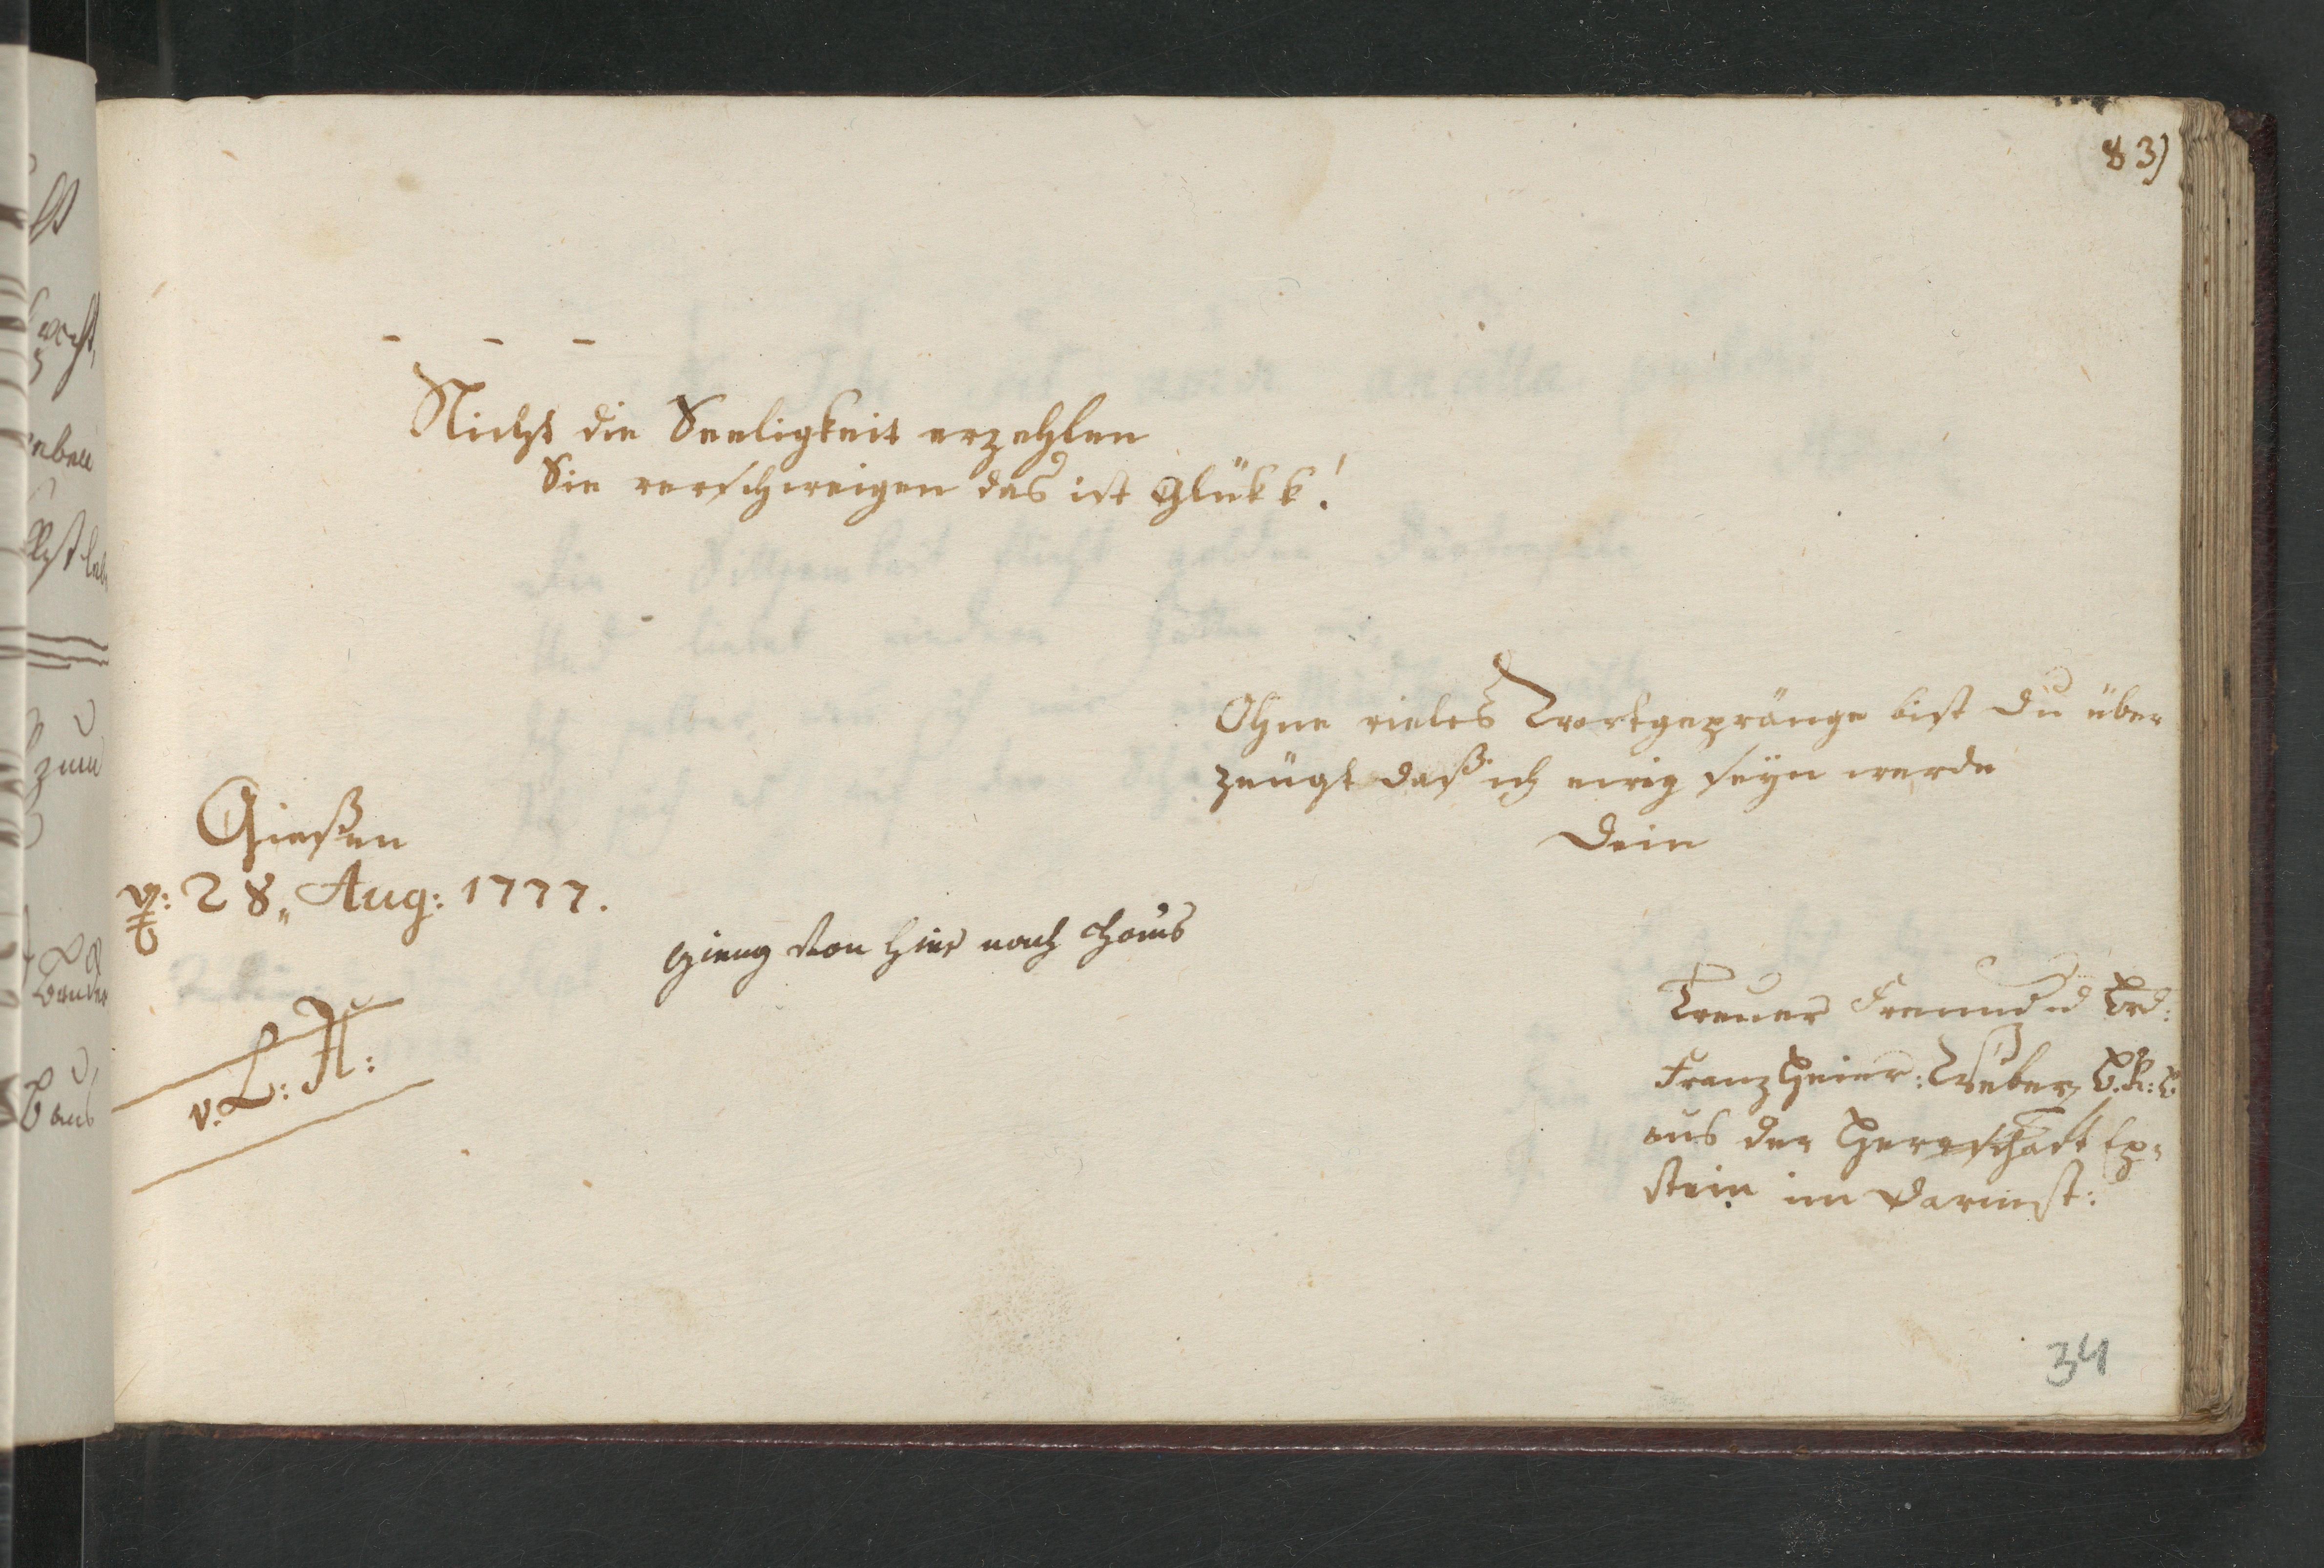 83)
- - -
Nicht die Seeligkeit erzehlen
Sie verschweigen das ist Glükk!
Ohne vieles Wortgepränge bist Du über
zeugt daß ich ewig seyn werde
Dein
Gießen
28„ Aug: 1777.
gieng von hier nach Haus
Treuer Freund u Brd:
Franz Heinr: Weber,
aus der Herrschaft Ep-
stein im Darmst:
v. L: H:
34